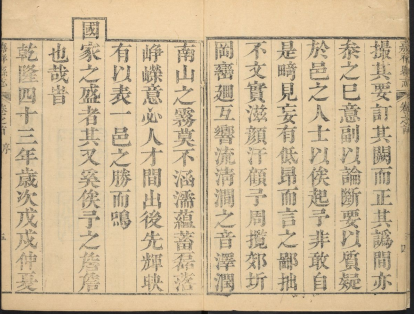 撮其要訂其闕而正其譌間亦
叅之已意副以論斷要以質疑
於邑之人士以俟起予非敢自
是疇見妄有低昂而言之鄙拙
不文實滋顔汗傾予周攬郊圻
岡巒廻互響流清澗之音澤潤
南山之霧莫不涵濡蘊蓄磊落
崢嶸意必人才間出後先輝映
有以表一邑之勝而鳴
國家之盛者其又奚俟予之詹詹
也哉旹
乾隆四十三年歲次戊戌仲夏